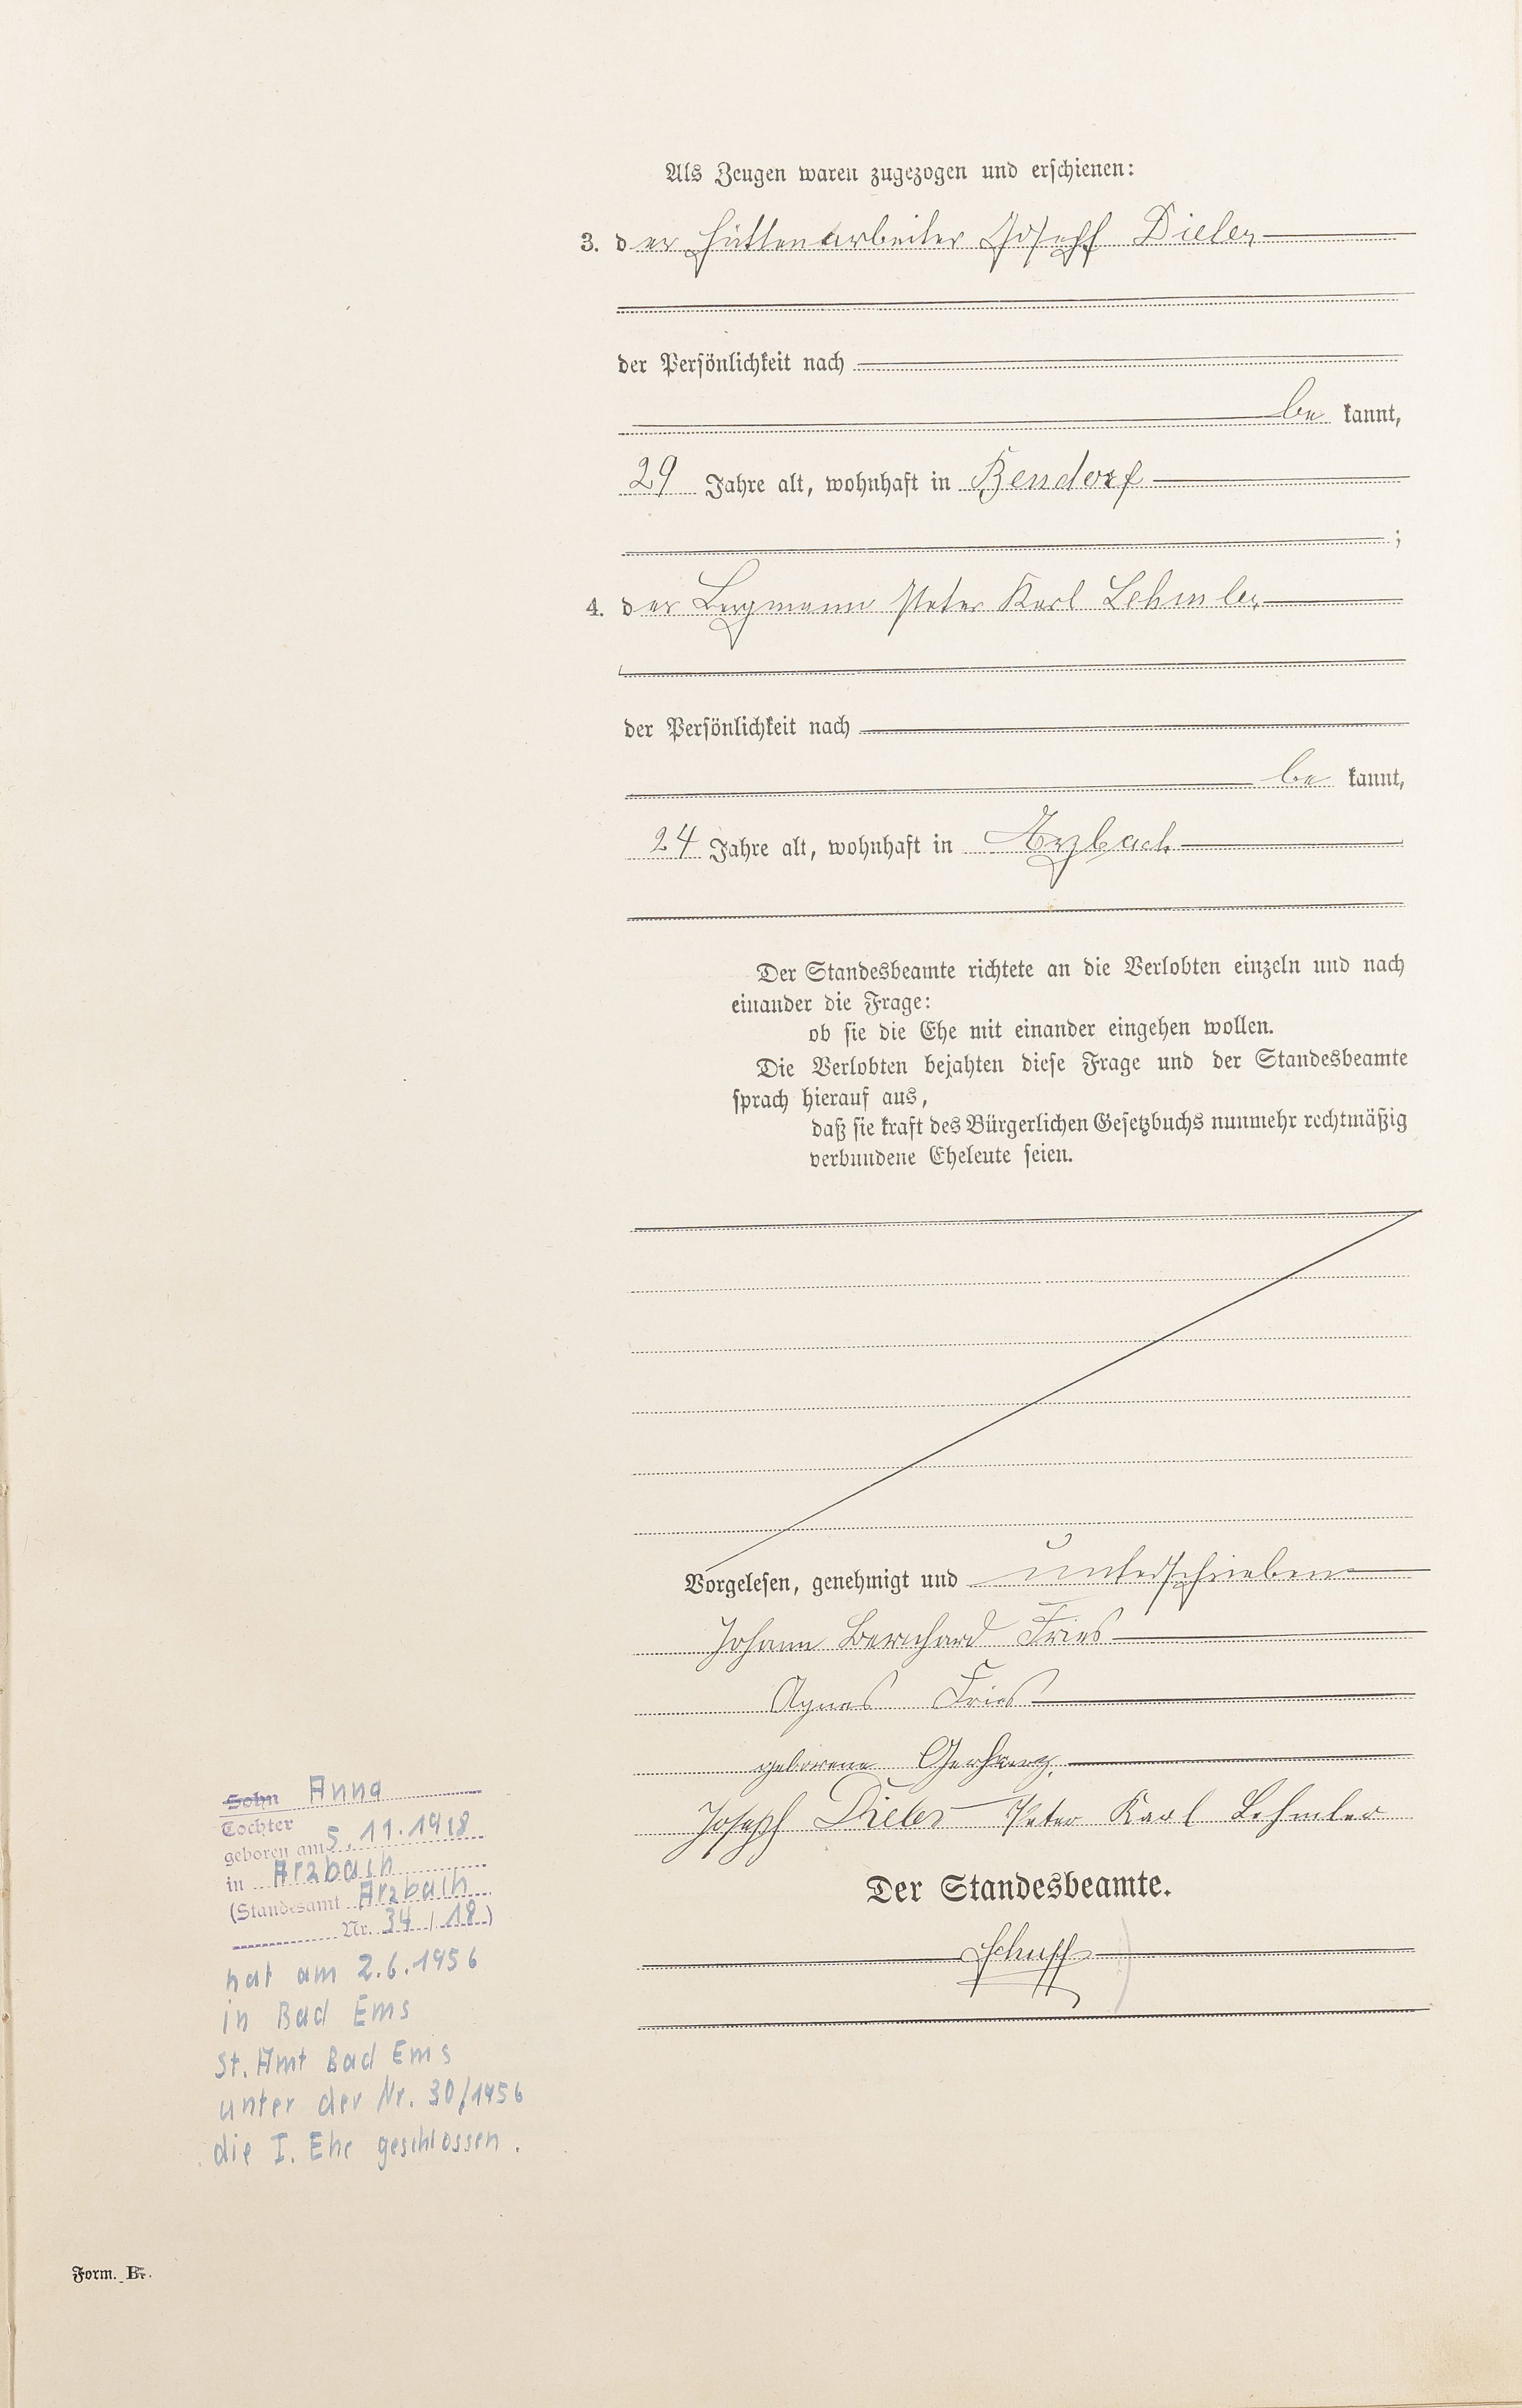 Als Zeugen waren zugezogen und erschienen:
3. der Hüttenarbeiter Joseph Dieler
der Persönlichkeit nach
be kannt,
29 Jahre alt, wohnhaft in Bendorf
;
4. der Bergmann Peter Karl Lehmler
der Persönlichkeit nach
be kannt,
24 Jahre alt, wohnhaft in Arzbach
Der Standesbeamte richtete an die Verlobten einzeln und nach
einander die Frage:
ob sie die Ehe mit einander eingehen wollen.
Die Verlobten bejahten diese Frage und der Standesbeamte
sprach hierauf aus,
daß sie kraft des Bürgerlichen Gesetzbuchs nunmehr rechtmäßig
verbundene Eheleute seien.
Vorgelesen, genehmigt und unterschrieben
Johann Bernhard Fries
Agnes Fries
geborene Gerharz.
Joseph Dieler Peter Karl Lehmler
Der Standesbeamte.
Schupp
Sohn Anna
Tochter
geboren am 5.11.1918
in Arzbach
(Standesamt Arzbach
Nr. 34/18)
hat am 2.6.1956
in Bad Ems
St. Amt Bad Ems
unter der Nr. 30/1956
die I. Ehe geschlossen.
Form. Br.